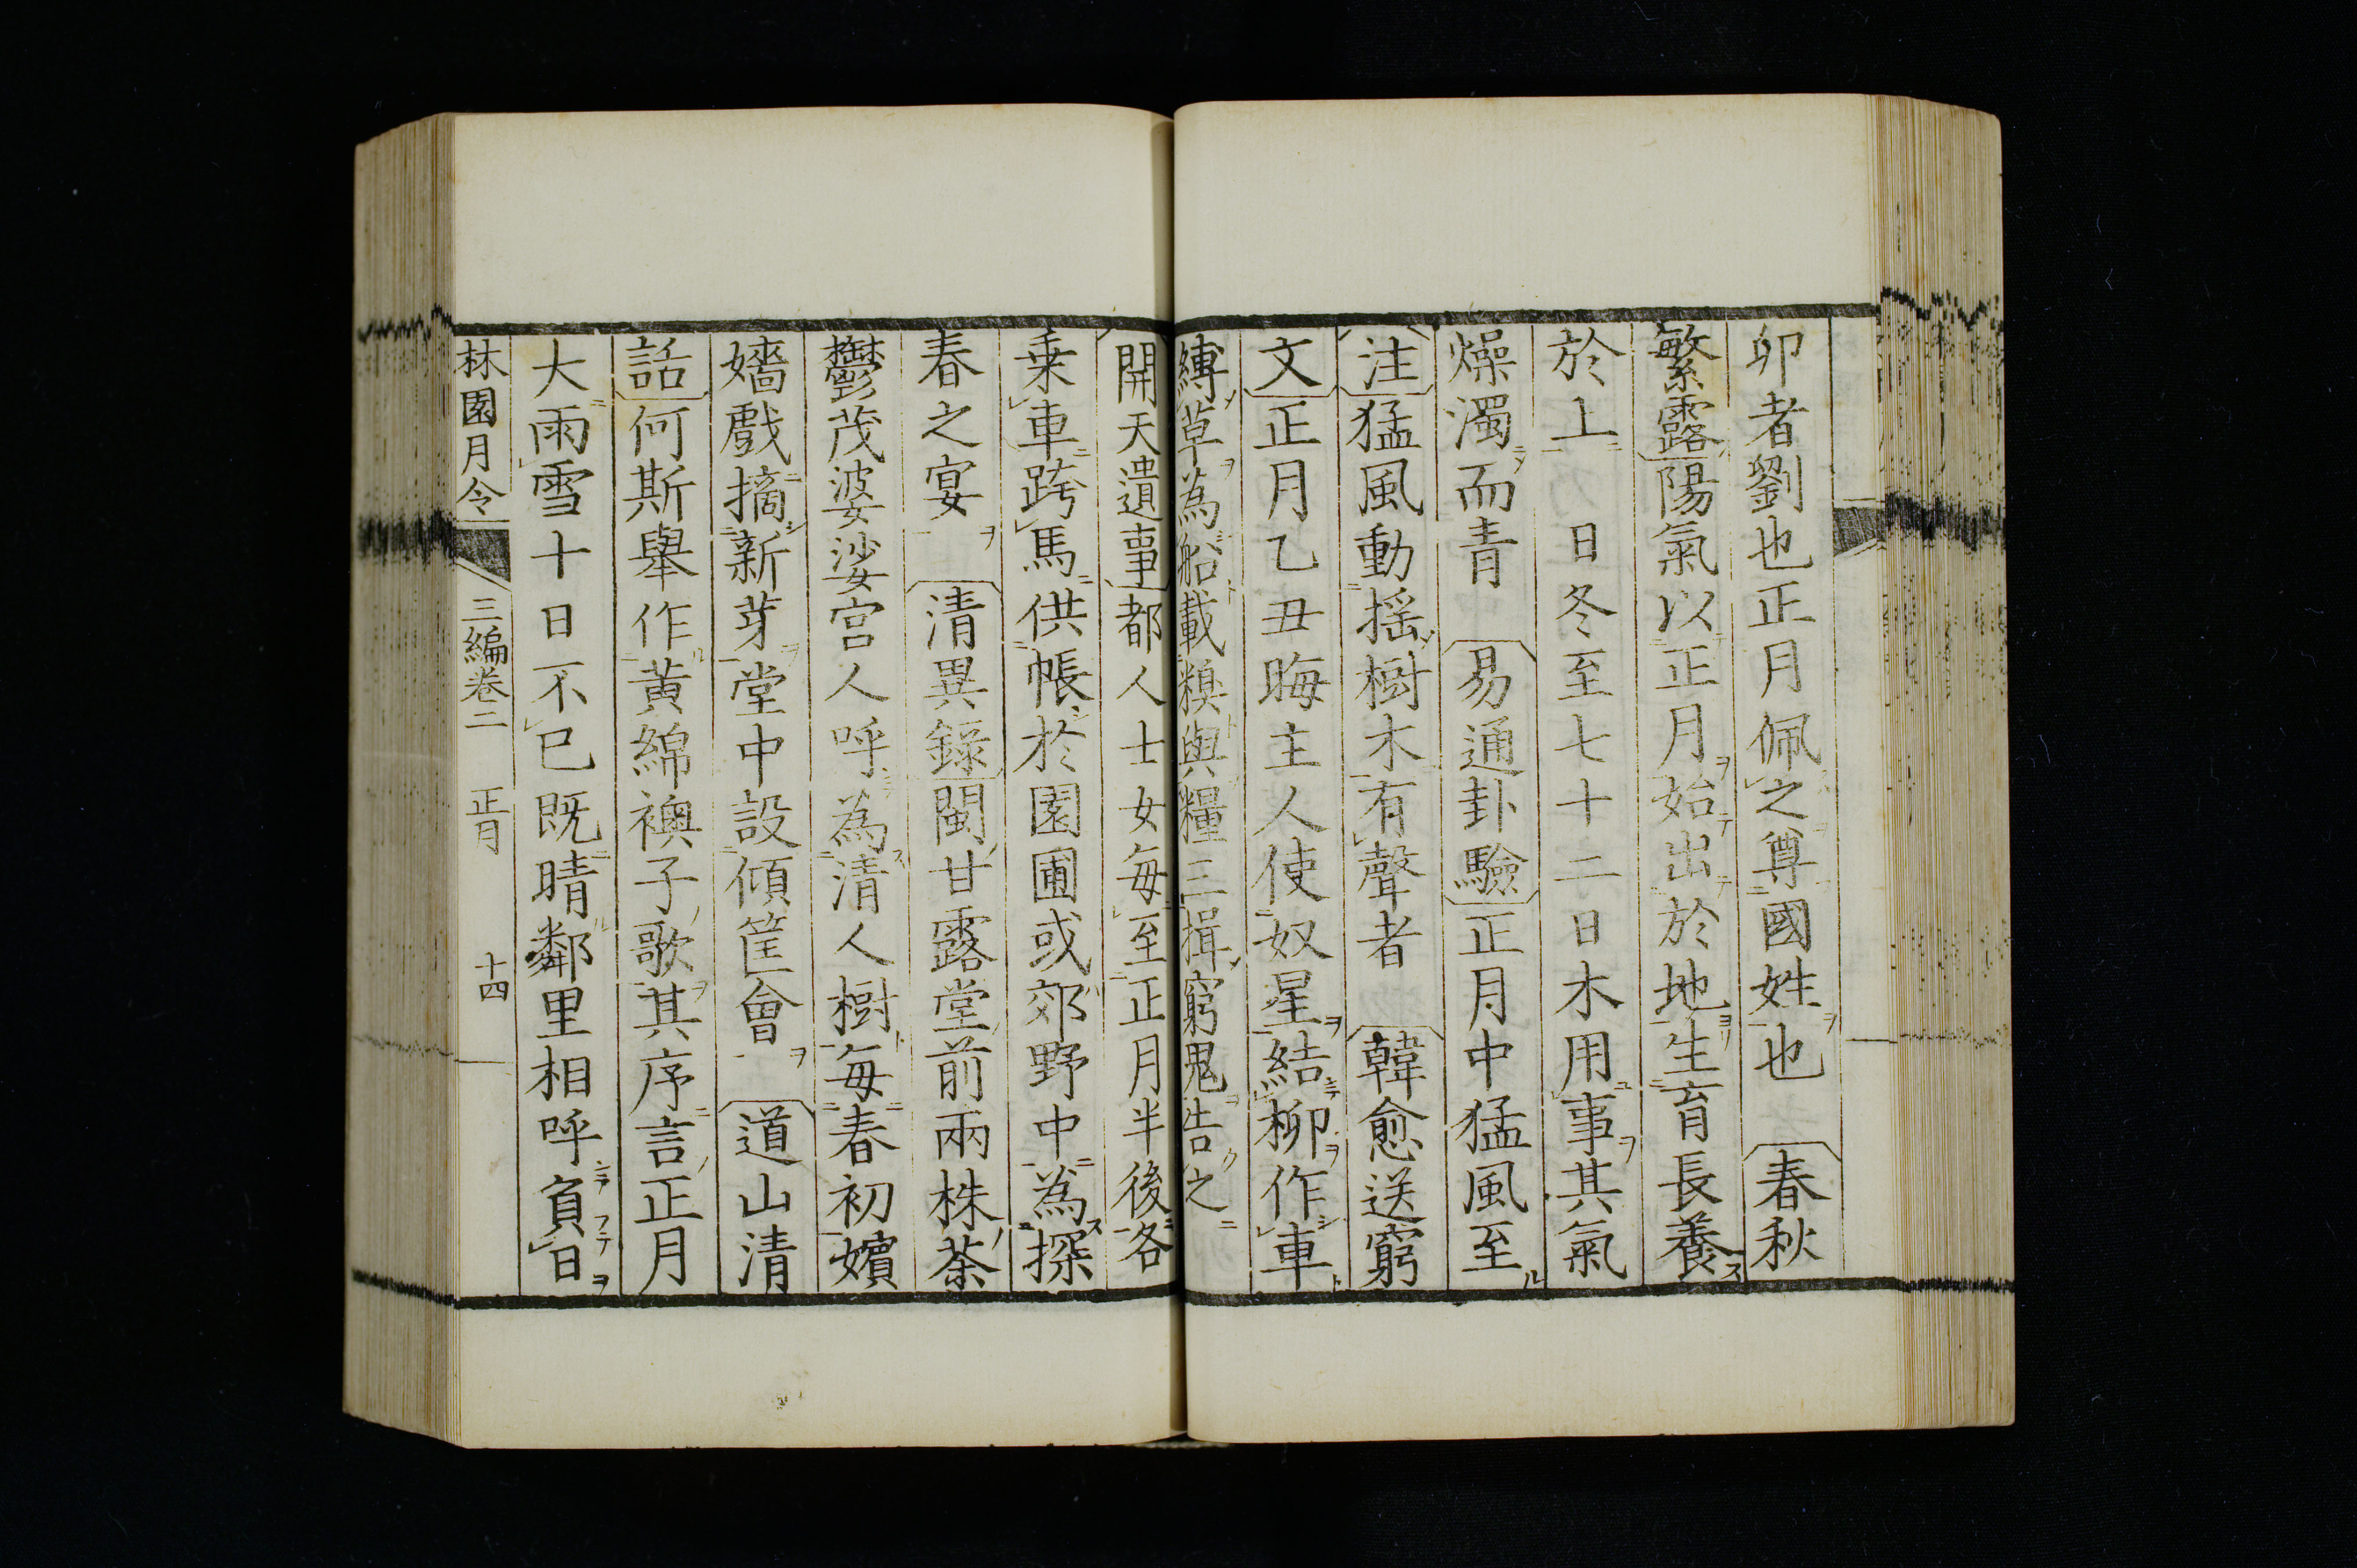 卯者劉也正月佩之尊國姓也春秋
繁露陽氣以正月始出於地生育長養
於上日冬至七十二日木用事其氣
燥濁而青易通卦驗正月中猛風至
注猛風動搖樹木有聲者韓愈送窮
文正月乙丑晦主人使奴星結柳作車
縛草為船載糗與糧三揖窮鬼告之
開天遺事都人士女每至正月半後各
乗車跨馬供帳於園圃或郊野中為探
春之宴清異錄閩甘露堂前兩株茶
鬱茂婆娑宮人呼為清人樹每春初嬪
嬙戲摘新芽堂中設傾筐會道山清
話何斯舉作黃綿襖子歌其序言正月
大雨雪十日不已既晴鄰里相呼負日
林園月令 三編卷二 正月 十四